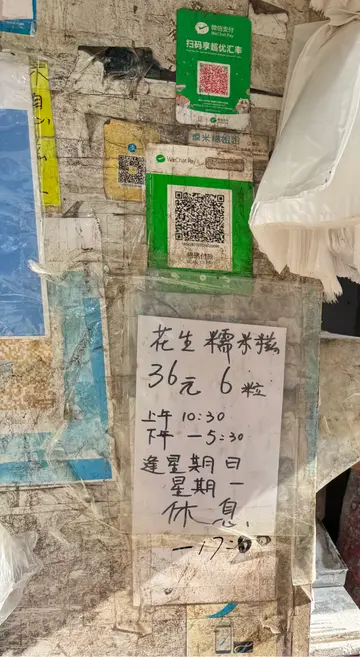 微信支付
WeChat Pay
扫码享超优汇率
WeChat Pay
花生糯米糍
36元 6粒
上午10:30
下午 —5:30
逢星期日
星期一
休息